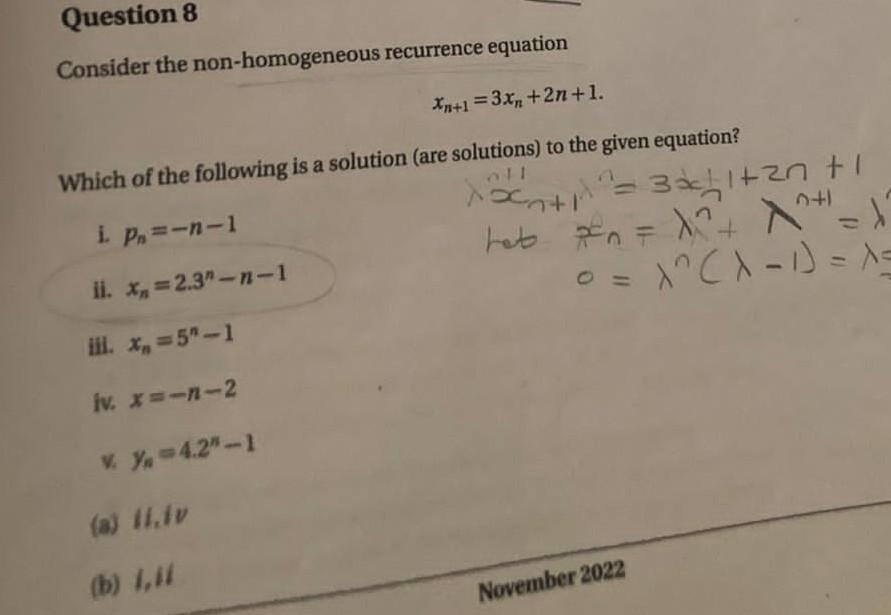 Question 8
Consider the non-homogeneous recurrence equation
xₙ₊₁ = 3xₙ + 2n + 1.
Which of the following is a solution (are solutions) to the given equation?
i. pₙ = −n − 1
ii. xₙ = 2.3ⁿ − n − 1
iii. xₙ = 5ⁿ − 1
iv. x = −n − 2
v. yₙ = 4.2ⁿ − 1
(a) ii, iv
(b) i, ii
+ 2n + 1
xₙ = λⁿ
λⁿ⁺¹ = λ
0 = λⁿ(λ − 1) = λ =
November 2022